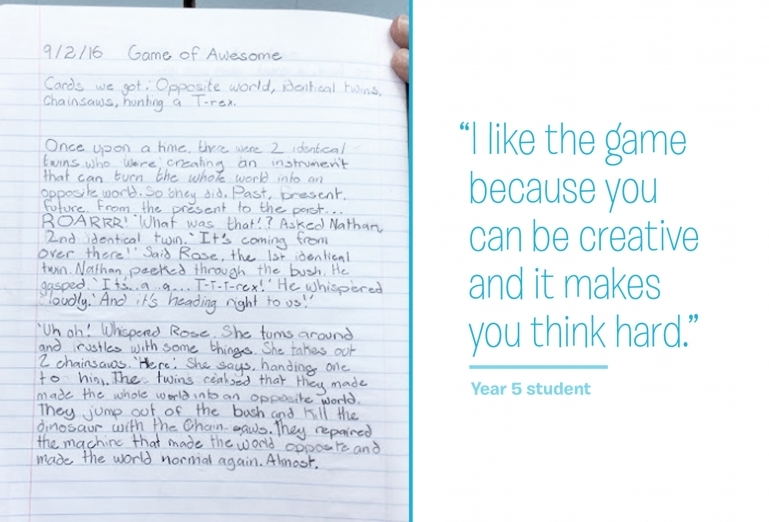 9/2/16 Game of Awesome
Cards we got: Opposite world, identical twins,
chainsaws, hunting a T-rex.
Once upon a time, there were 2 identical
twins who were creating an instrument
that can turn the whole world into an
opposite world. So they did. Past, present,
future. From the present to the past...
ROARRR! 'What was that!'? Asked Nathan,
2nd identical twin. 'It's coming from
over there!' Said Rose, the 1st identical
twin. Nathan, peeked through the bush. He
gasped. 'It's..a..a... T-T-T-rex!' He whispered
loudly.' And it's heading right to us!'
'Uh oh! Whispered Rose. She turns around
and rustles with some things. She takes out
2 chainsaws. 'Here'. She says, handing one
to him. The twins realised that they made
made the whole world into an opposite world.
They jump out of the bush and kill the
dinosaur with the Chain-saws. They repaired
the machine that made the world opposite and
made the world normal again. Almost.
“I like the game
because you
can be creative
and it makes
you think hard.”
Year 5 student